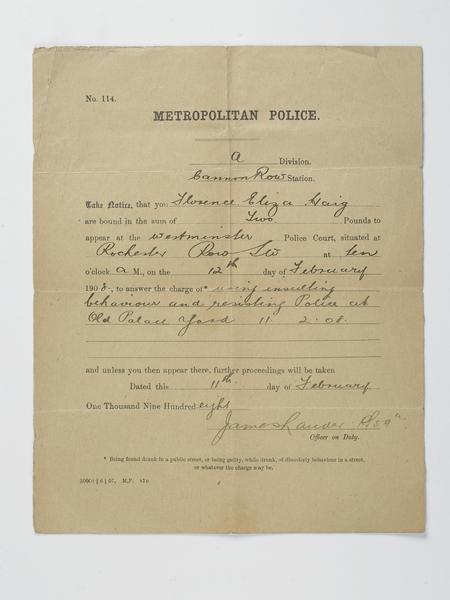 No. 114.
METROPOLITAN POLICE.
A Division.
Cannon Row Station.
Take Notice, that you Florence Eliza Haig
are bound in the sum of Two Pounds to
appear at the Westminster Police Court, situated at
Rochester Row SW at ten
o'clock A M., on the 12th day of February
1908, to answer the charge of* using insulting
behaviour and resisting Police at
Old Palace Yard 11. 2.08.
and unless you then appear there, further proceedings will be taken
Dated this 11th day of February
One Thousand Nine Hundred eight
James
Officer on Duty.
* Being found drunk in a public street, or being guilty, while drunk, of disorderly behaviour in a street,
or whatever the charge may be.
M.P.